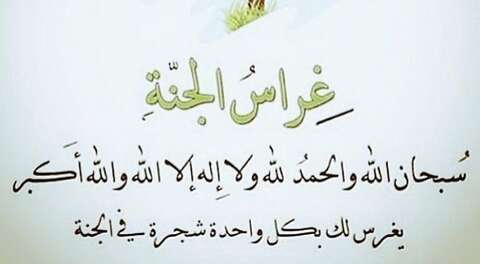 غِراسُ الجنّةِ
سُبحان الله والحمدُ لله ولا إِله إلا الله والله أَكبر
يغرس لك بكل واحدة شجرة في الجنة